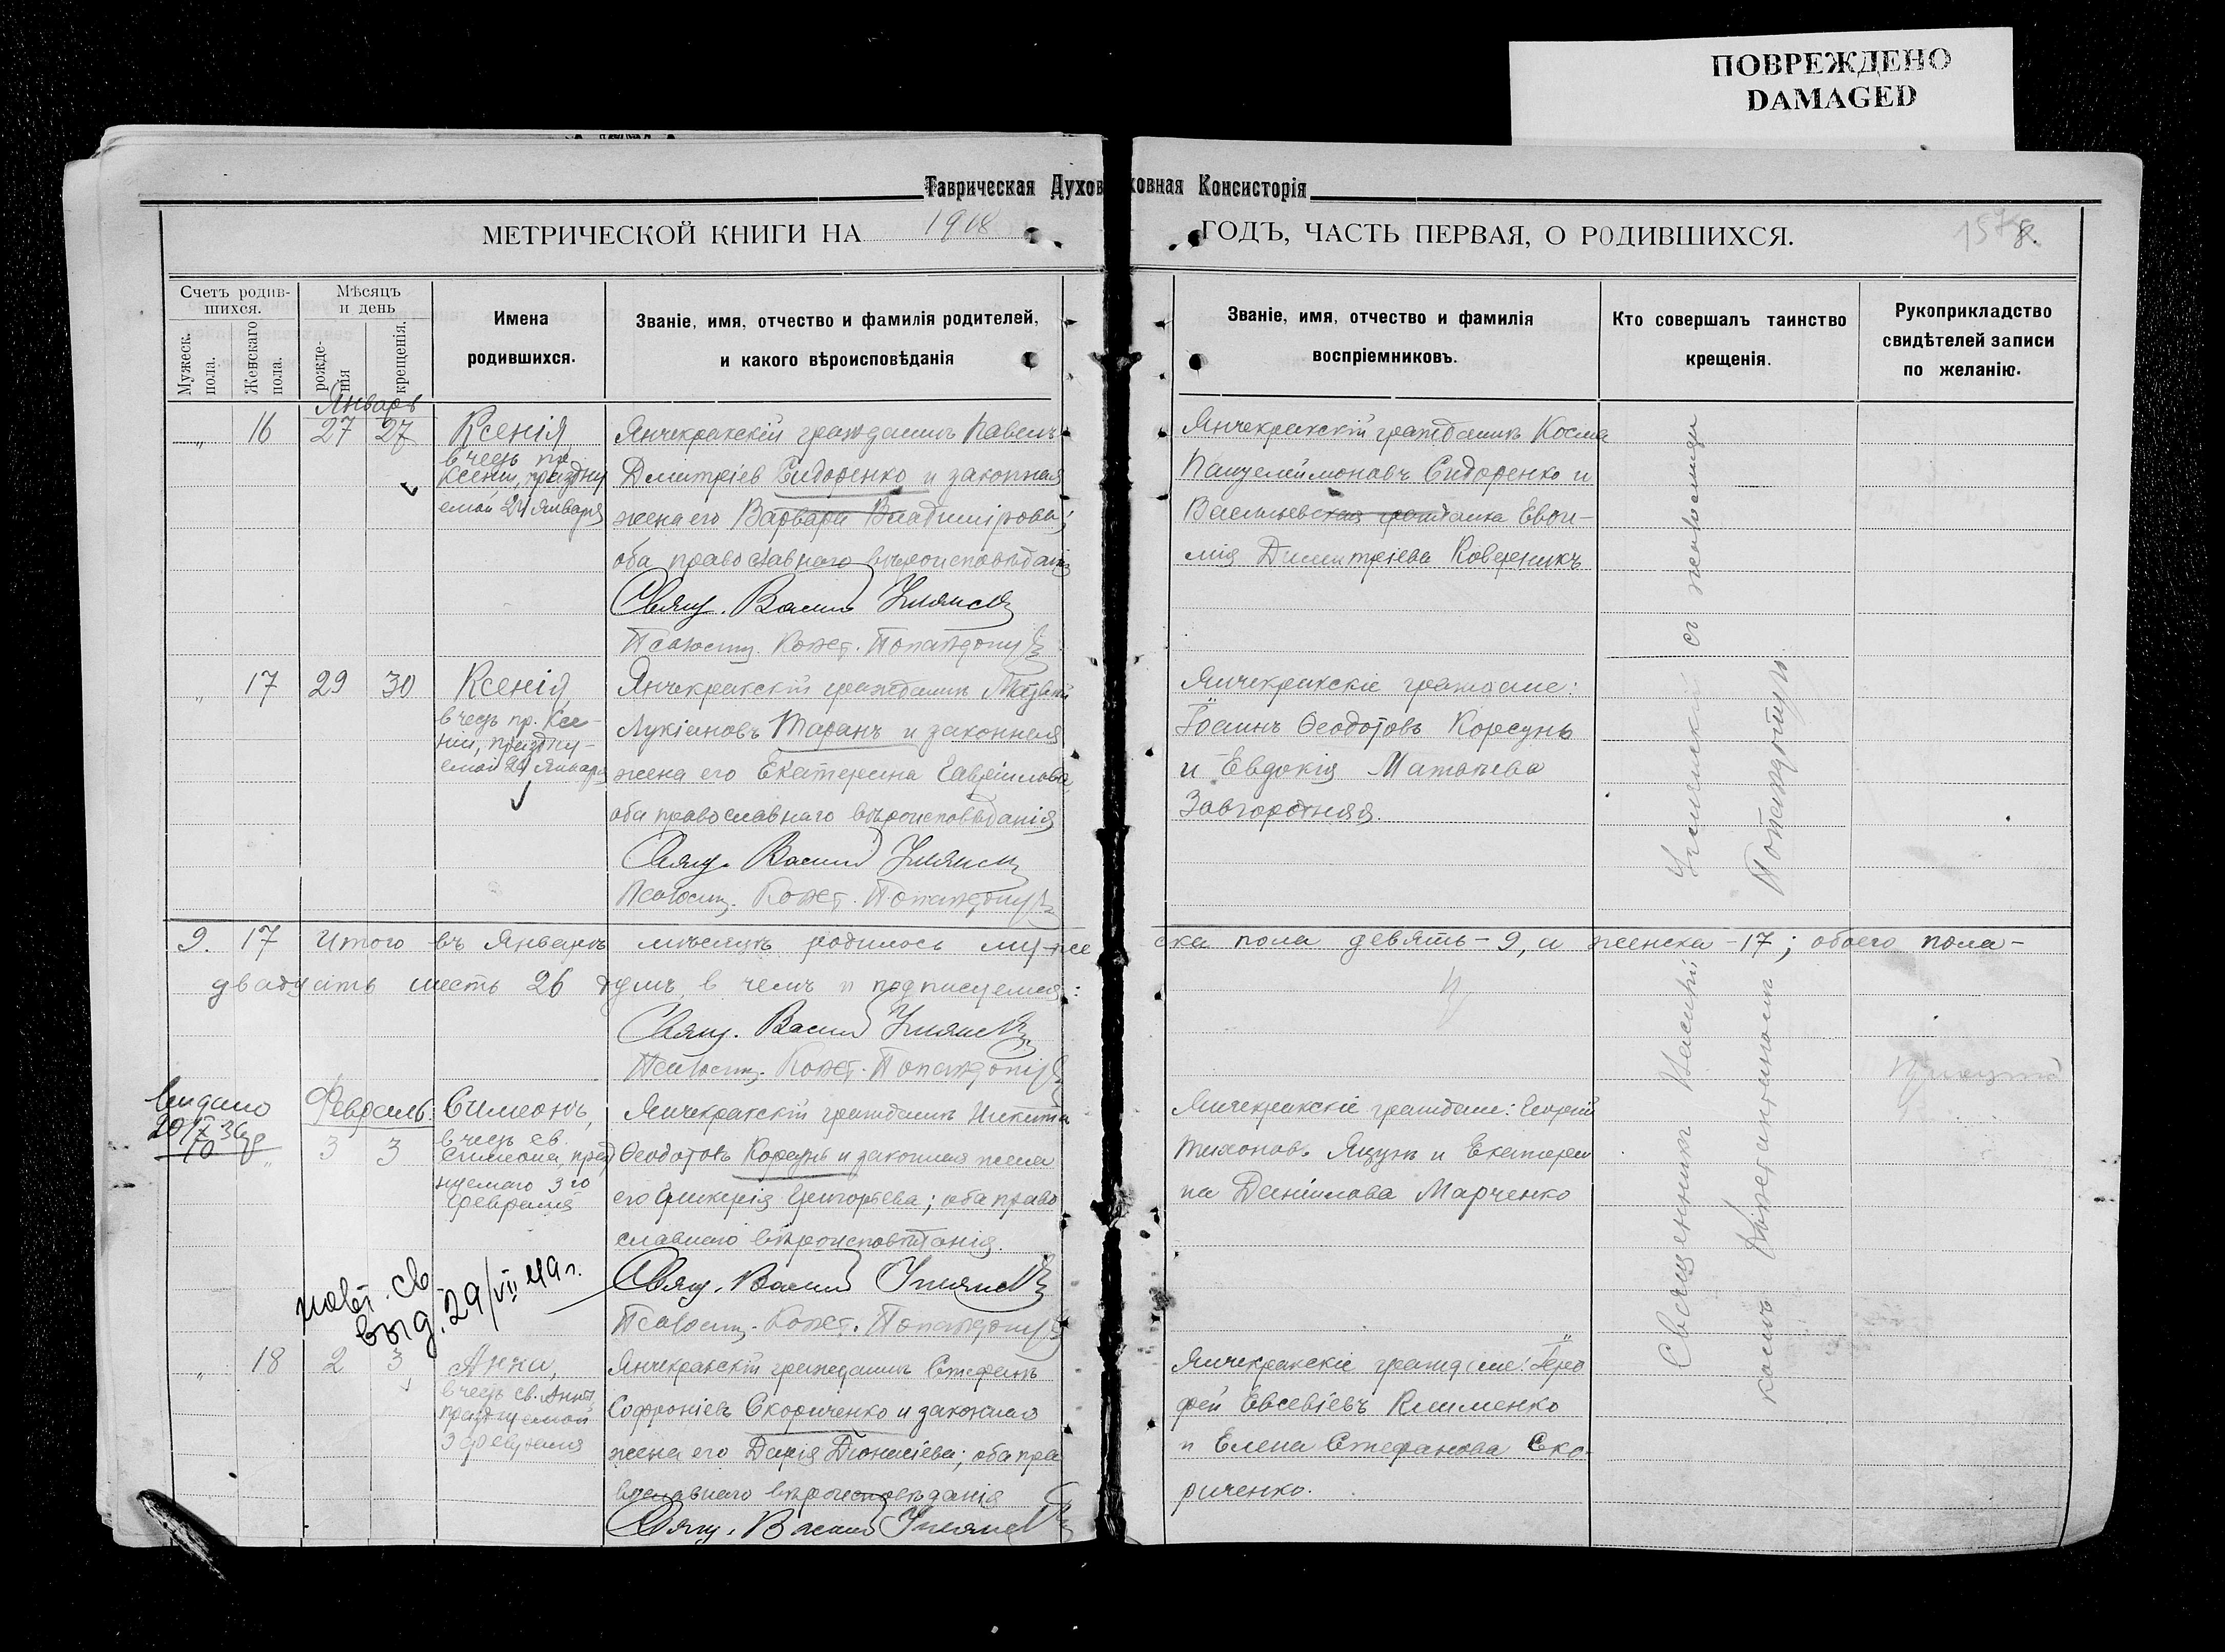 ПОВРЕЖДЕНО
DAMAGED
Таврическая Духов
ховная Консисторія
МЕТРИЧЕСКОЙ КНИГИ НА 1908
ГОДЪ, ЧАСТЬ ПЕРВАЯ, О РОДИВШИХСЯ.
8.
Счетъ родив-
шихся.
Мужеск.
пола.
Женскаго
пола.
Мѣсяцъ
и день
рожде-
нія
крещенія.
Имена
родившихся.
Званіе, имя, отчество и фамилія родителей,
и какого вѣроисповѣданія
Званіе, имя, отчество и фамилія
воспріемниковъ.
Кто совершалъ таинство
крещенія.
Рукоприкладство
свидѣтелей записи
по желанію.
Январь
„ 16 27 27
Ксенія
в честь пр.
Ксеніи, праздну
емой 24 Января
Янчекракскій гражданинъ Павелъ
Димитріев Сидоренко и законная
жена его Варвара Владимірова;
оба православнаго вѣроисповѣданія
Свящ. Василій
Псаломщ. Конст.
Янчекракскій гражданинъ Косма
Пантелеимоновъ Сидоренко и
Васильевская гражданка Евфи-
мія Димитріева Коверникъ
„ 17 29 30
Ксенія
в честь пр. Ксе-
ніи, праздну-
емой 24 Января
Янчекракскій гражданинъ Матвей
Лукіановъ Таранъ и законная
жена его Екатерина Гавріилова
оба православнаго вѣроисповѣданія
Свящ. Василій
Псаломщ. Конст.
Янчекракскіе граждане:
Іоаннъ Ѳеодотовъ Корсунь
и Евдокія
Завгородняя.
9. 17 Итого въ Январѣ мѣсяцѣ родилось муже
ска пола девять - 9, и женска - 17; обоего пола -
двадцать шесть 26 душъ, в чемъ и подписуемся:
Свящ. Василій
Псаломщ. Конст.
Выдано
Февраль.
3 3
Симеонъ,
в честь св.
Симеона, празд
нуемаго 3 го
февраля
Янчекракскій гражданинъ Никита
Ѳеодотовъ Корсунь и законная жена
его Гликерія Григорьева; оба право
славнаго вѣроисповѣданія.
Свящ. Василій
Псаломщ. Конст.
Янчекракскіе граждане: Георгій
Тихоновъ Яцунъ и Екатери
на Даніилова Марченко
повт. св.
выд. 29/VII 49 г.
„ 18 2 3
Анна,
в честь св. Анны
празднуемой
3 февраля
Янчекракскій гражданинъ Стефанъ
Софроніевъ Скориченко и законная
жена его Дарія Діонисіева; оба пра
вославнаго вѣроисповѣданія
Свящ. Василій
Янчекракскіе граждане: Іеро
фей Евсевіевъ Клименко
и Елена Стефанова Ско-
риченко.
Священникъ Василій
съ псаломщи
комъ Константиномъ